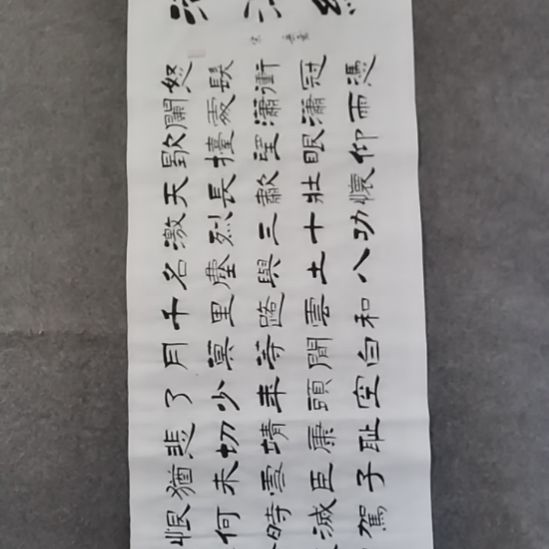 宋 岳飛
怒髮衝冠憑
闌處瀟瀟雨
歇擡望眼仰
天長歗壯懷
激烈三十功
名塵與土八
千里路雲和
月莫等閒白
了少年頭空
悲切靖康恥
猶未雪臣子
恨何時滅駕